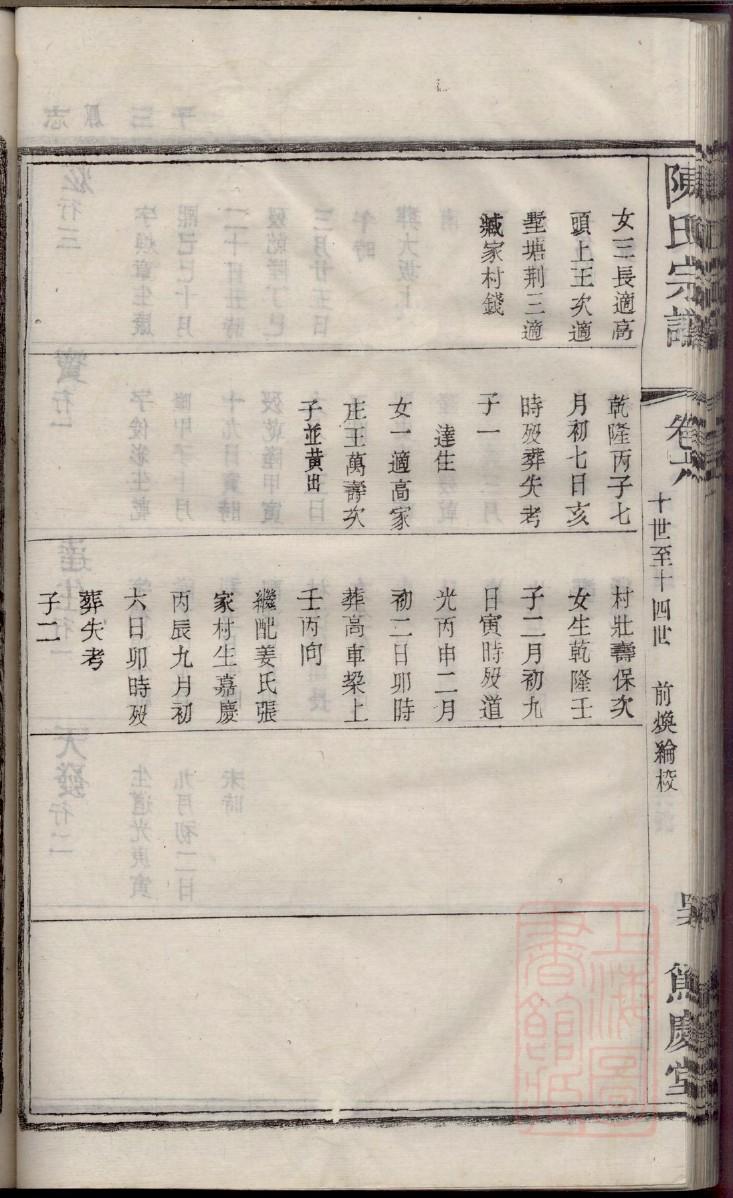 陳氏宗譜
卷六
十世至十四世
前煥綸校
篤慶堂
女三長適高
頭上王次適
墅塘荆三適
臧家村錢
乾隆丙子七
月初七日亥
時歿葬失考
子一
達仕
女一適高家
庄王萬壽次
子並黃出
村壯壽保次
女生乾隆壬
子二月初九
日寅時歿道
光丙申二月
初二日卯時
葬高車梁上
壬丙向
繼配姜氏張
家村生嘉慶
丙辰九月初
六日卯時歿
葬失考
子二
上海圖書館藏